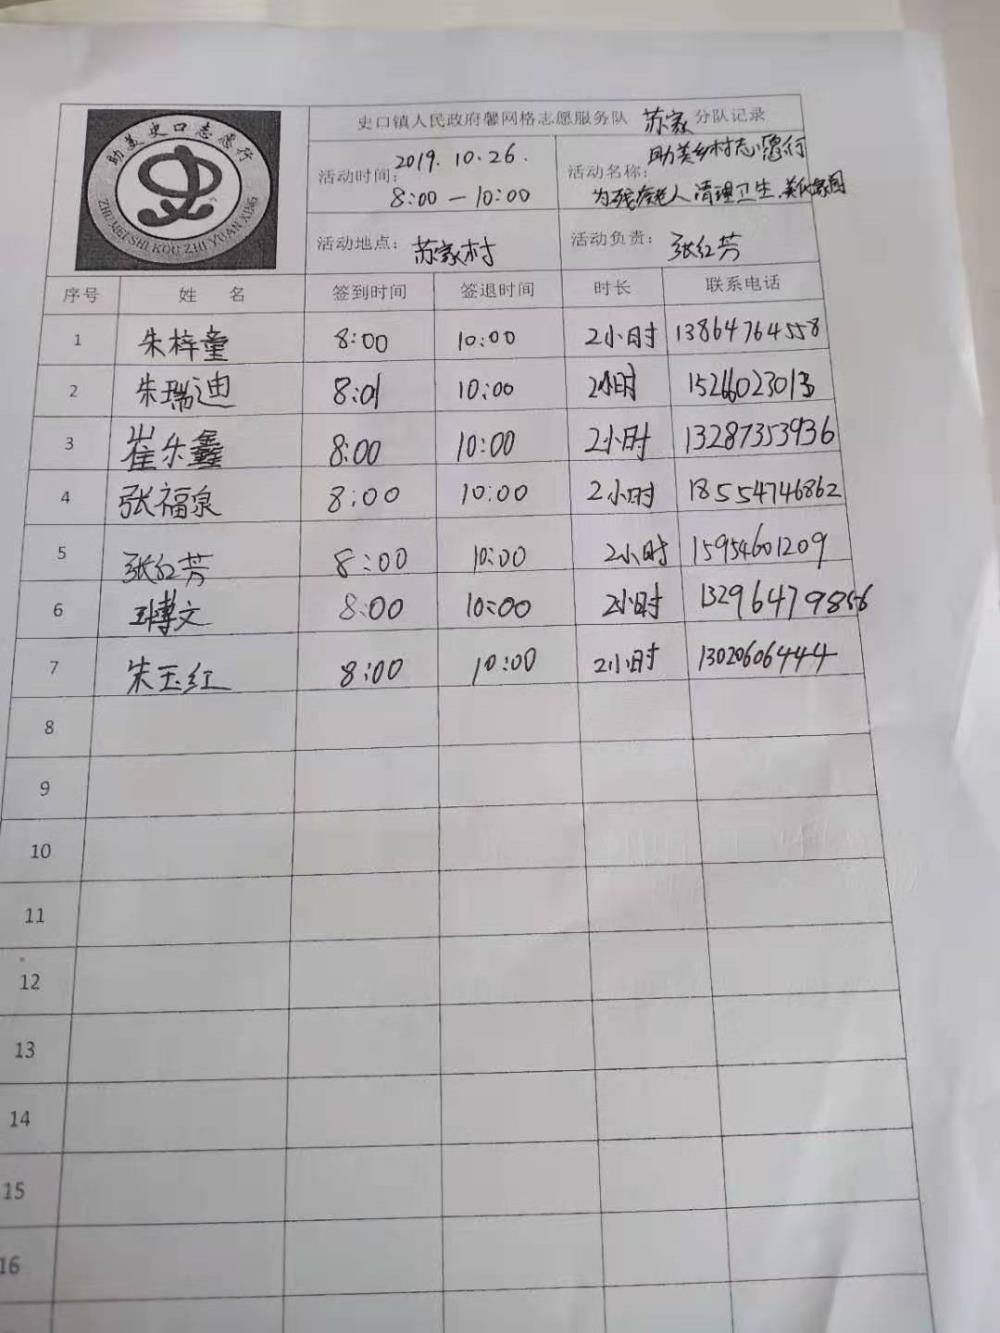 助美史口志愿行
ZHU MEI SHI KOU ZHI YUAN XING
史口镇人民政府馨网格志愿服务队 苏家 分队记录
活动时间: 2019.10.26.
8:00 — 10:00
活动名称: 助美乡村志愿行
为残疾老人清理卫生、美化家园
活动地点: 苏家村
活动负责: 张红芳
序号 姓 名 签到时间 签退时间 时长 联系电话
1 朱梓童 8:00 10:00 2小时 13864764558
2 朱瑞迪 8:01 10:00 2小时 15266023013
3 崔乐鑫 8:00 10:00 2小时 13287353936
4 张福泉 8:00 10:00 2小时 18554746862
5 张红芳 8:00 10:00 2小时 15954601209
6 王博文 8:00 10:00 2小时 13296479856
7 朱玉红 8:00 10:00 2小时 13020606444
8
9
10
11
12
13
14
15
16